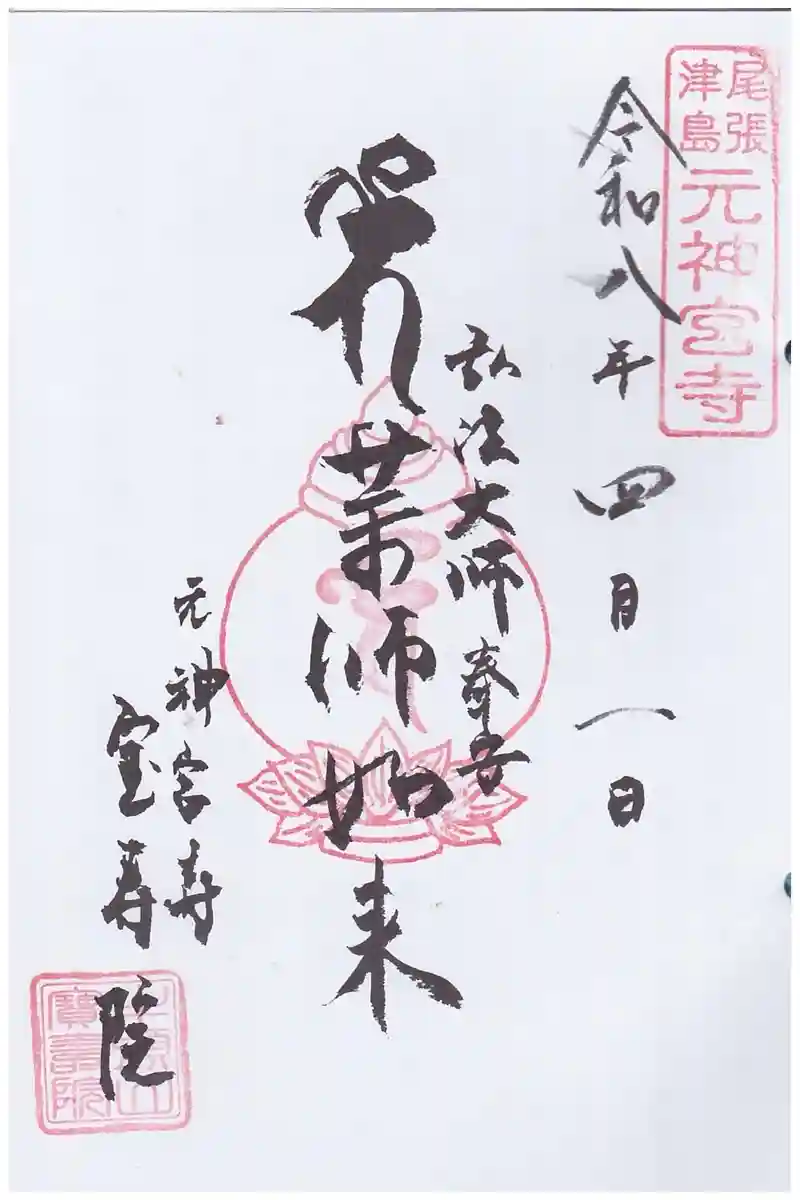 尾張
津島
元神宮寺
令和八年四月一日
弘法大師 奉安
薬師如来
元神宮寺
宝寿院
寶壽院